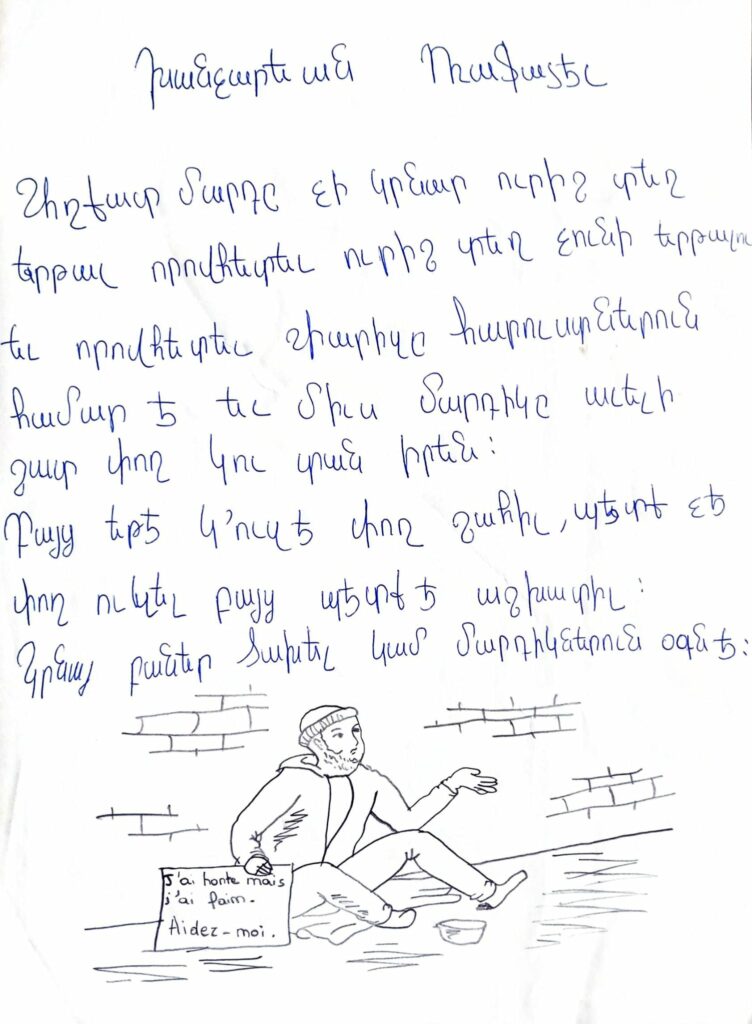 Խանչարեան Ռաֆայէլ
Աղքատ մարդը չի կրնար ուրիշ տեղ
երթալ որովհետեւ ուրիշ տեղ չունի երթալու
եւ որովհետեւ հարուստներուն
համար է եւ միւս մարդիկը աւելի
շատ փող կու տան իրեն:
Բայց եթէ կ'ուզէ փող շահիլ, պէտք չէ
փող ուզել բայց պէտք է աշխատիլ:
Կրնայ բաներ ծախել կամ մարդիկներուն օգնէ:
J'ai honte mais
j'ai faim.
Aidez-moi.